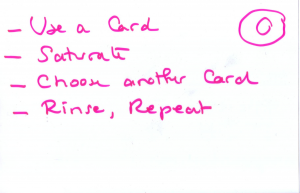 - Use a Card
- Saturate
- Choose another Card
- Rinse, Repeat
0